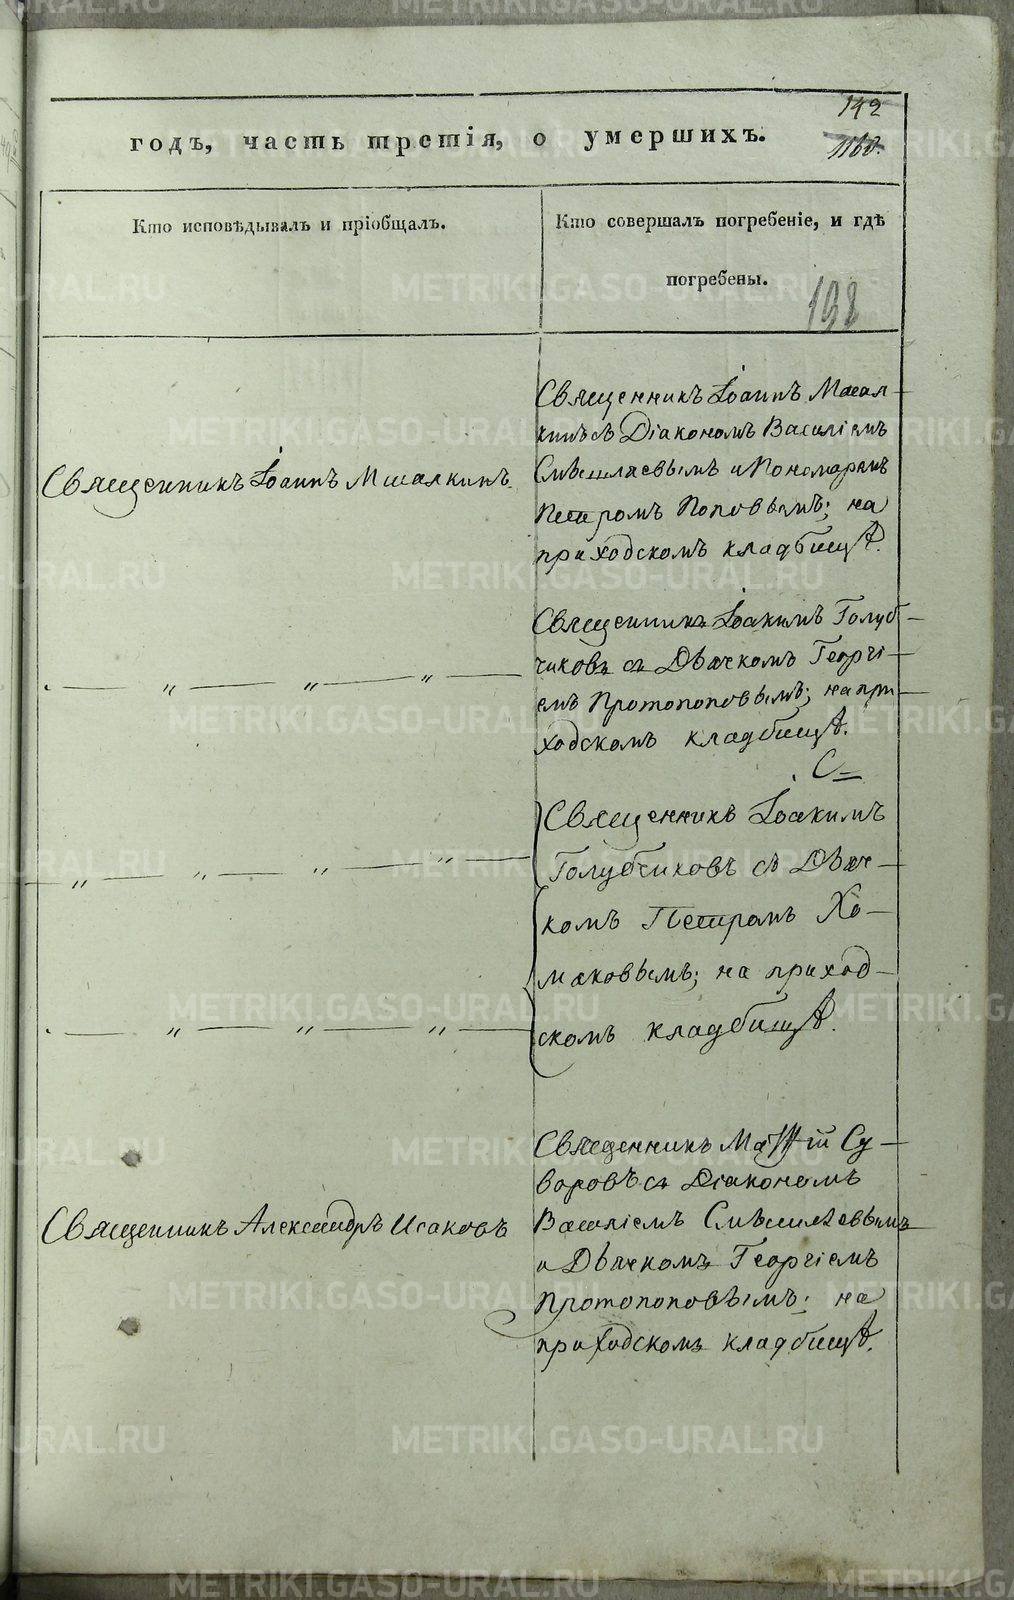 142
1160.
годъ, часть третія, о умершихъ.
Кто исповѣдывалъ и пріобщалъ.
Кто совершалъ погребеніе, и гдѣ
погребены.
198
Священникъ Іоаннъ Масал-
кинъ съ Діакономъ Василіемъ
Священникъ Іоаннъ Масалкинъ
Смышляевымъ и Пономаремъ
Петромъ Поповымъ; на
приходскомъ кладбищѣ.
Священникъ Іоакимъ Голуб-
чиковъ съ Дьячкомъ Георгі-
" " "
емъ Протопоповымъ; на при-
ходскомъ кладбищѣ.
С=
Священникъ Іоакимъ
Голубчиковъ съ Дьяч-
" " " "
комъ Петромъ Хо-
маковымъ; на приход-
скомъ кладбищѣ.
" " "
Священникъ Матѳій Су-
воровъ съ Діакономъ
Священникъ Александръ Исаковъ
Василіемъ Смышляевымъ
и Дьячкомъ Георгіемъ
Протопоповымъ; на
приходскомъ кладбищѣ.
METRIKI.GASO-URAL.RU